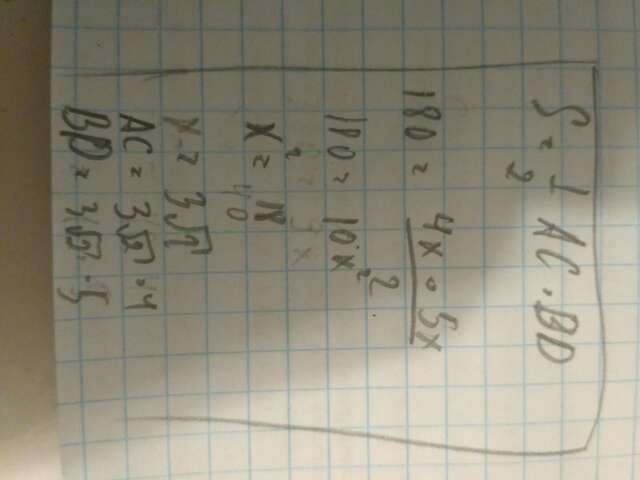 S = 1/2 AC · BD
180 = 4x · 5x / 2
180 = 10x²
x² = 18
x = 3√2
AC = 3√2 · 4
BD = 3√2 · 5